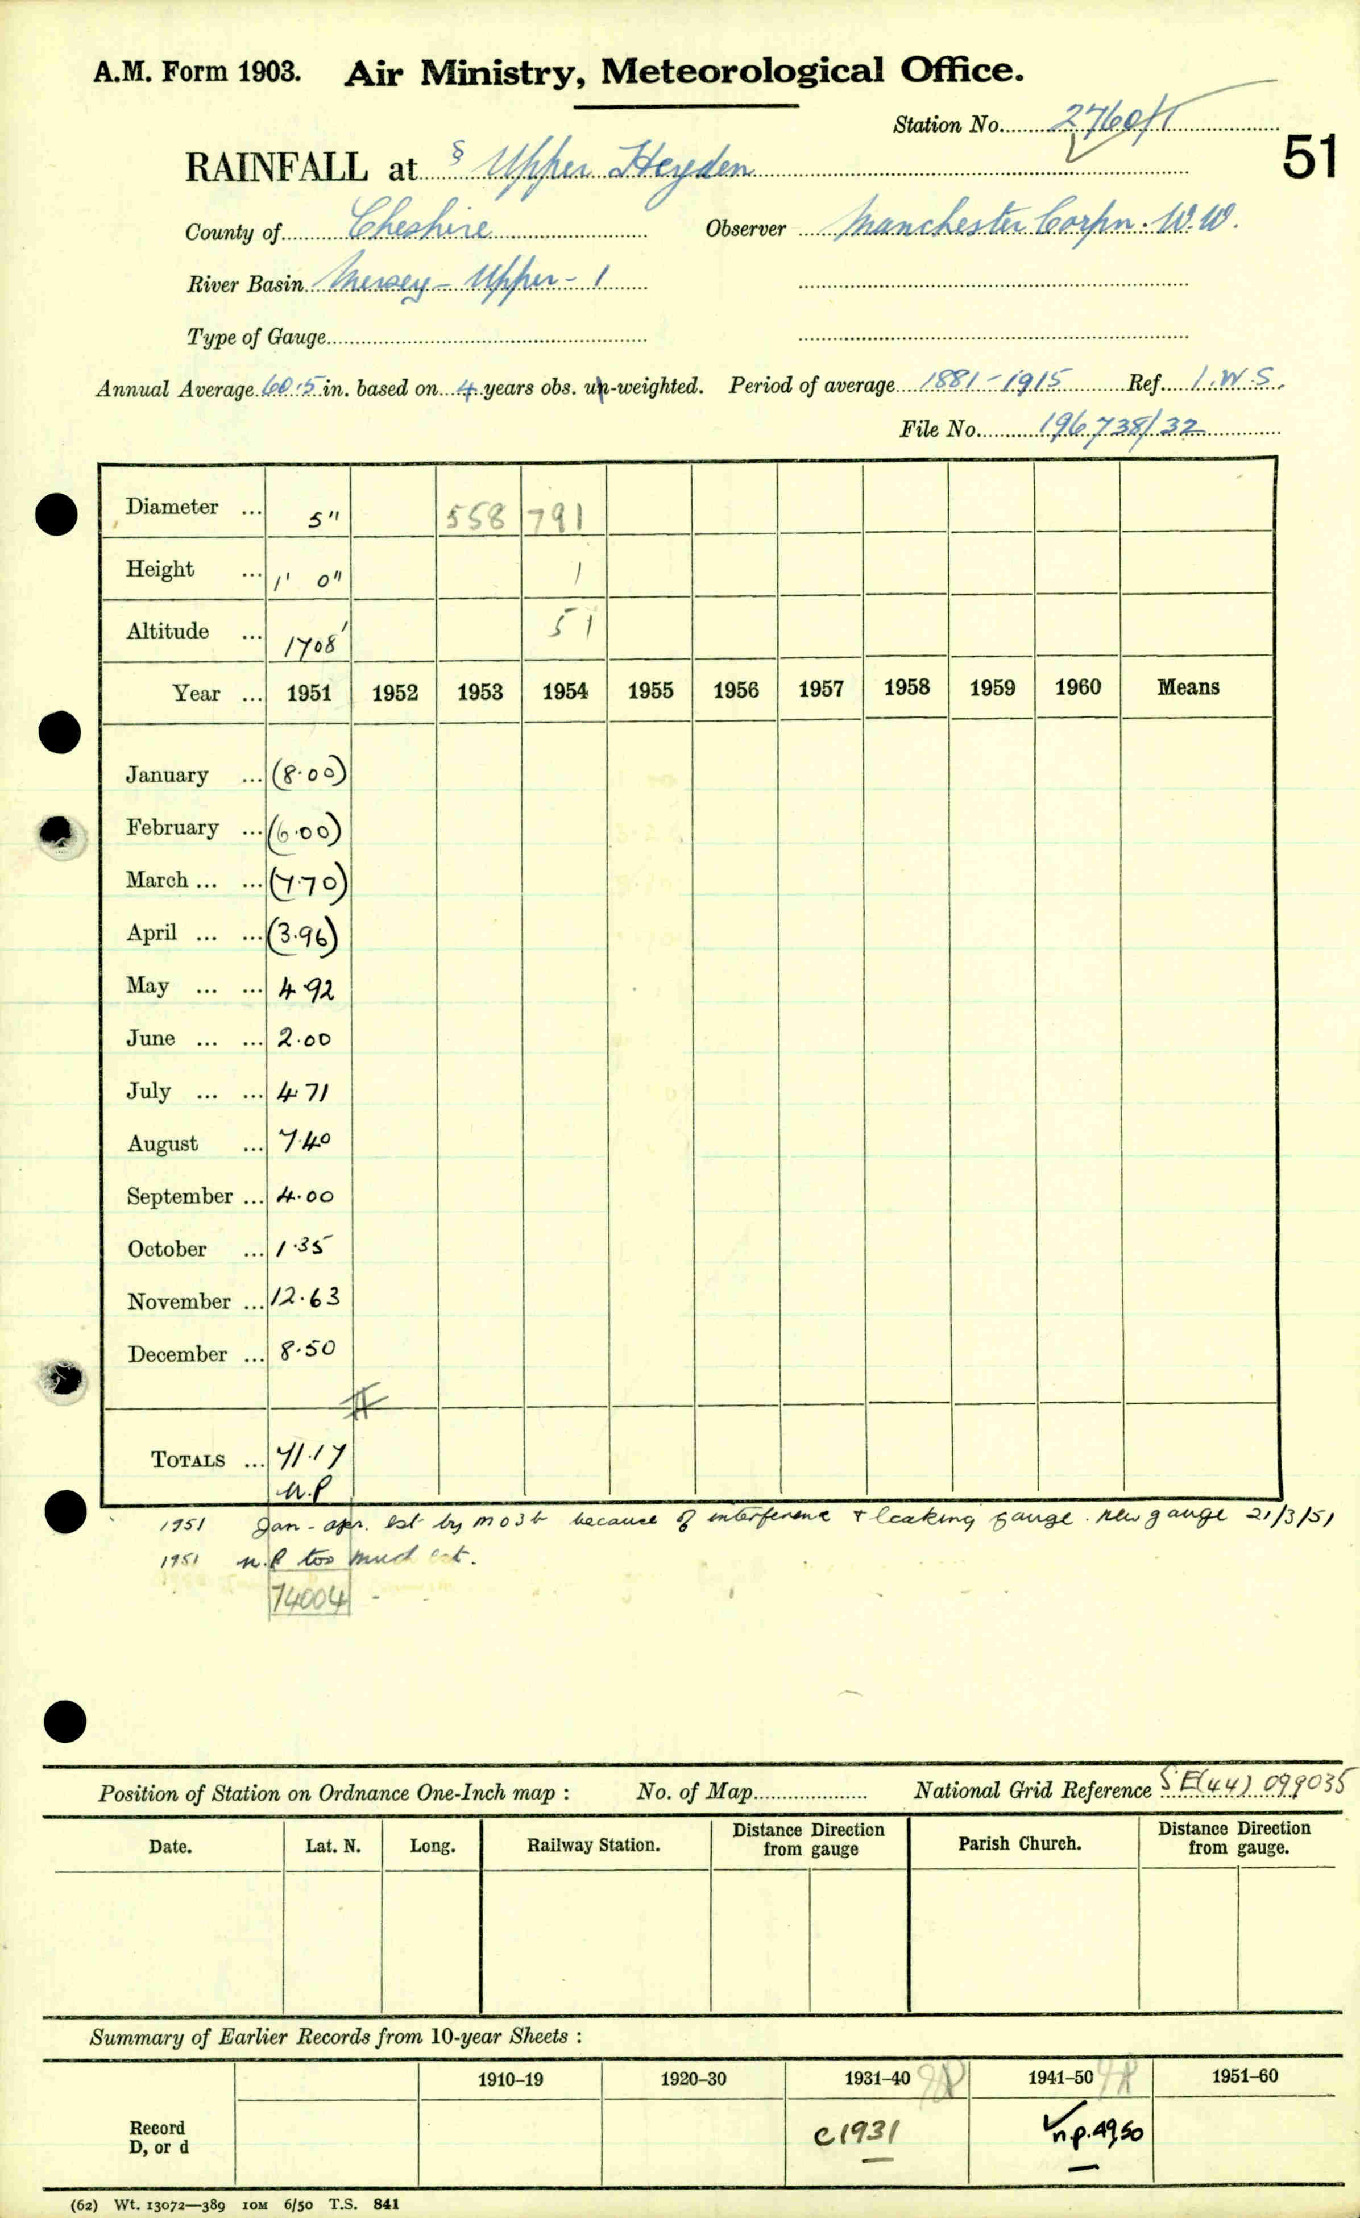 A.M. Form 1903. Air Ministry, Meteorological Office.
Station No. 2760/1
51
RAINFALL at § Upper Heyden
County of Cheshire Observer Manchester Corpn. W.W.
River Basin Mersey - Upper - 1
Type of Gauge
Annual Average 60.5 in. based on 4 years obs. un-weighted. Period of average 1881-1915 Ref. I.W.S.
File No. 196738/32
Diameter ... 5" 558 791
Height ... 1' 0" 1
Altitude ... 1708' 51
Year ... 1951 1952 1953 1954 1955 1956 1957 1958 1959 1960 Means
January ... (8.00)
February ... (6.00)
March ... ... (7.70)
April ... ... (3.96)
May ... ... 4.92
June ... ... 2.00
July ... ... 4.71
August ... 7.40
September ... 4.00
October ... 1.35
November ... 12.63
December ... 8.50
TOTALS ... 71.17
n.P
1951 Jan - apr. est by mo3b because of interference + leaking gauge. new gauge 21/3/51
1951 n.P too much est.
74004
Position of Station on Ordnance One-Inch map : No. of Map National Grid Reference SE(44) 099035
Date. Lat. N. Long. Railway Station. Distance Direction from gauge Parish Church. Distance Direction from gauge.
Summary of Earlier Records from 10-year Sheets :
1910-19 1920-30 1931-40 1941-50 1951-60
Record D, or d c1931 n p. 49,50
(62) Wt. 13072—389 10M 6/50 T.S. 841